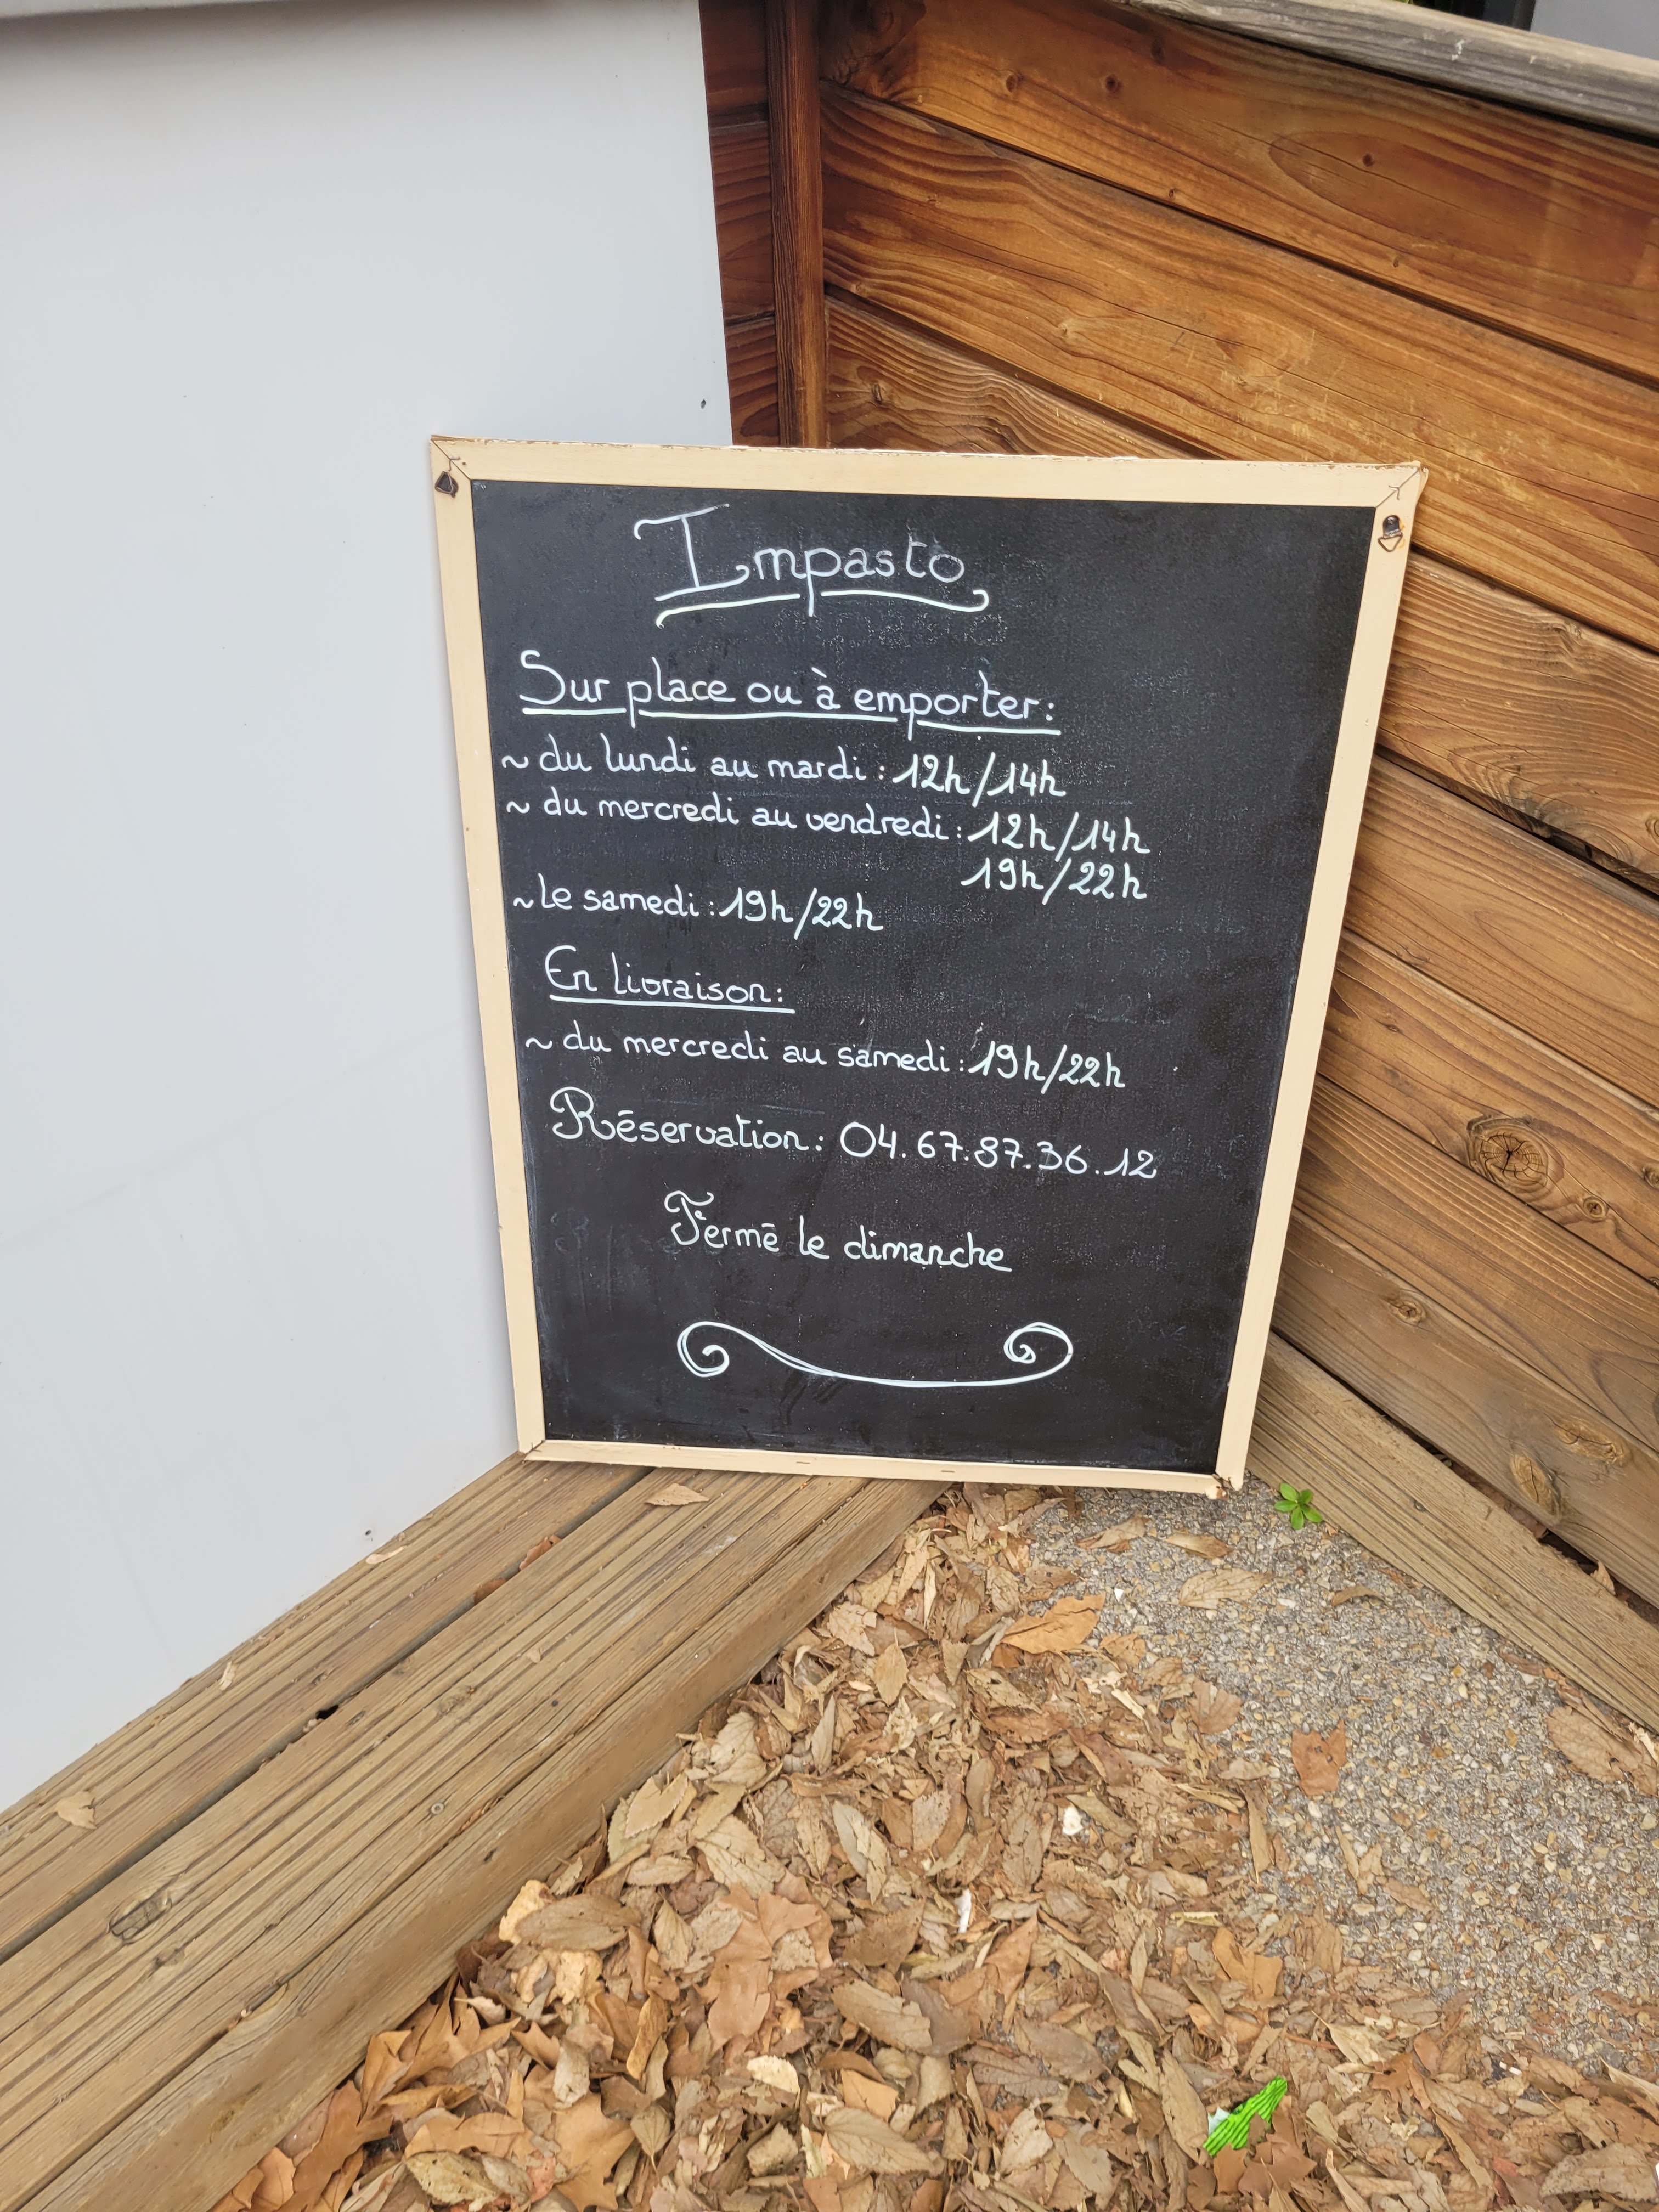 Impasto
Sur place ou à emporter:
~ du lundi au mardi : 12h/14h
~ du mercredi au vendredi : 12h/14h
19h/22h
~ Le samedi : 19h/22h
En livraison:
~ du mercredi au samedi : 19h/22h
Réservation : 04.67.87.36.12
Fermé le dimanche